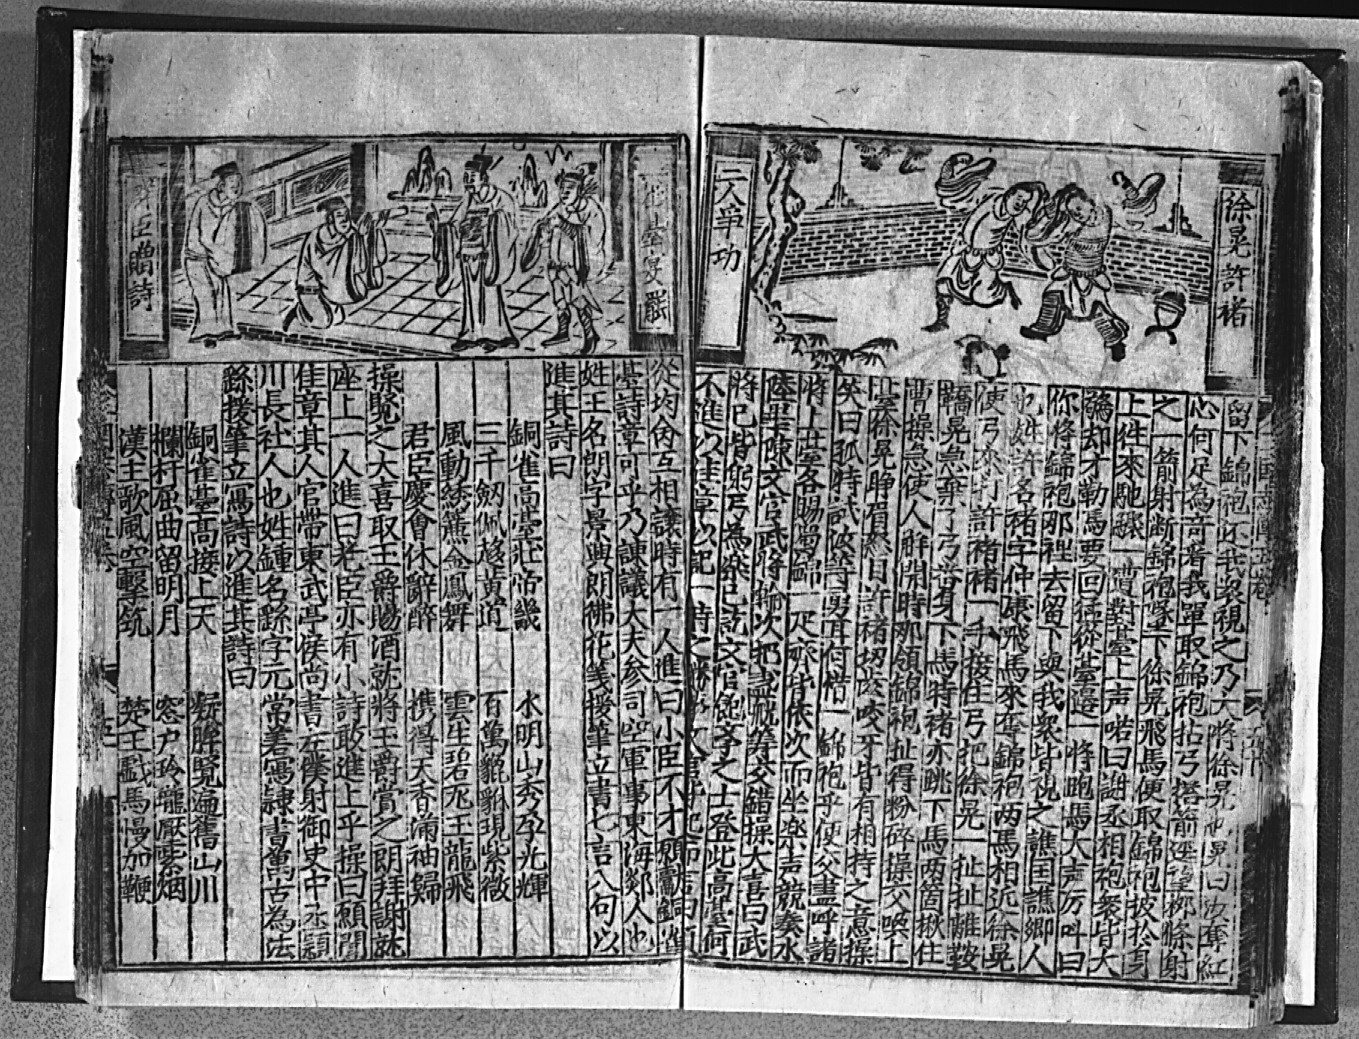 徐晃許褚
二人爭功
留下錦袍还我衆視之乃大將徐晃也晃曰汝奪紅
心何足為竒看我單取錦袍拈弓搭箭遥望栁條射
之一箭射断錦袍墜下徐晃飛馬便取錦袍披扵身
上徃來馳驟一遭對臺上声喏曰謝丞相袍衆皆大
驕却才勒馬要回猛從臺邉一將跑馬大声厉叫曰
你將錦袍那裡去留下與我衆皆視之譙国譙郷人
也姓許名褚字仲康飛馬來奪錦袍两馬相近徐晃
便弓來打許褚褚一手接住弓把徐晃一扯扯離鞍
鞽晃急棄了弓畨身下馬特褚亦跳下馬两箇揪住
曹操急使人解開時那領錦袍扯得粉碎操交喚上
臺徐晃睁眉怒目許褚切齿咬牙皆有相持之意操
笑曰孤特試汝等勇耳何惜一錦袍乎便交盡呼諸
將上臺各賜蜀錦一疋
依次而坐楽声競奏水
陸畢陳文官武將輪次把盏觥筹交錯操大喜曰武
將已皆
弓為楽
文官飽斈之士登此高臺何
不進以佳章以記一時之
臺詩章可乎乃諌議大夫参司空軍事東海郯人也
姓王名朗字景興朗彿花笺援筆立書七言八句以
進其詩曰
銅雀高臺壮帝畿 水明山秀
光輝
三千劒佩趍黄道 百萬貔貅現紫薇
風動綉簾金鳳舞 雲生碧尾玉龍飛
君臣慶會休辭醉 携得天香滿袖歸
操覧之大喜取玉爵賜酒就將玉爵賞之朗拜謝就
座上一人進曰老臣亦有小詩敢進上乎操曰願聞
佳章其人官帶東武亭侯尚書左僕射御史中丞穎
川長社人也姓鍾名繇字元常善寫隷書萬古為法
繇援筆立寫詩以進其詩曰
銅雀臺高接上天 凝眸覧遍舊山川
欄杆屈曲留明月 窓户玲瓏厭素烟
漢主歌風空擊筑 楚王戱馬慢加鞭